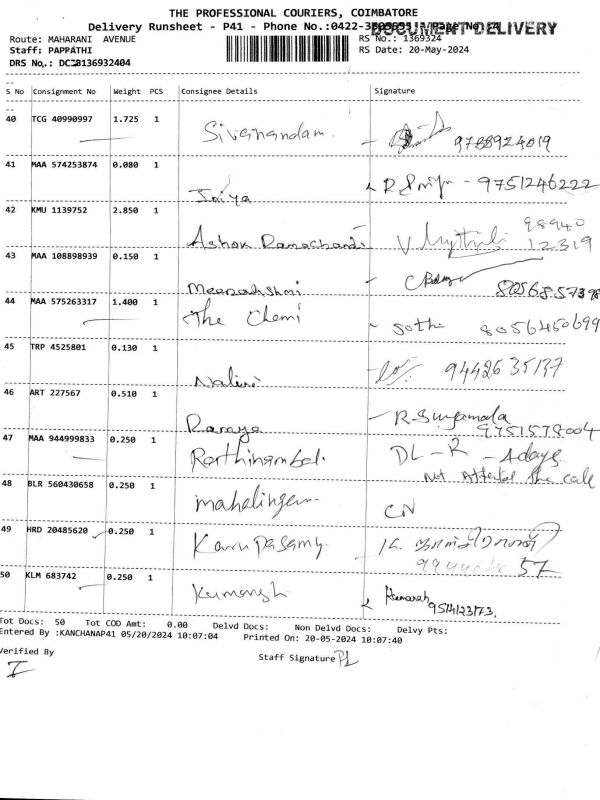 THE PROFESSIONAL COURIERS, COIMBATORE
Delivery Runsheet - P41 - Phone No.:0422-
DOCUMENT DELIVERY
Route: MAHARANI AVENUE
RS No.: 1369324
Staff: PAPPATHI
RS Date: 20-May-2024
DRS No.: 136932404
S No Consignment No Weight PCS Consignee Details Signature
40 TCG 40990997 1.725 1 Sivanandam 9788924019
41 MAA 574253874 0.080 1 Iniya 9751246222
42 KMU 1139752 2.850 1 Ashok Ramachandr 98940
12319
43 MAA 108898939 0.150 1 Meenakshmi
44 MAA 575263317 1.400 1 The Chemi 8056450699
45 TRP 4525801 0.130 1 Nalini 9442635137
46 ART 227567 0.510 1 Ramya R Suryamala
9751578004
47 MAA 944999833 0.250 1 DL - R - Adays
Not Attended the call
48 BLR 560430658 0.250 1 mahalingam CN
49 HRD 20485620 0.250 1 Karupasamy
57
50 KLM 683742 0.250 1 Kumaresh
9514123173.
Tot Docs: 50 Tot COD Amt: 0.00 Delvd Docs: Non Delvd Docs: Delvy Pts:
Entered By :KANCHANAP41 05/20/2024 10:07:04 Printed On: 20-05-2024 10:07:40
Verified By
Staff Signature